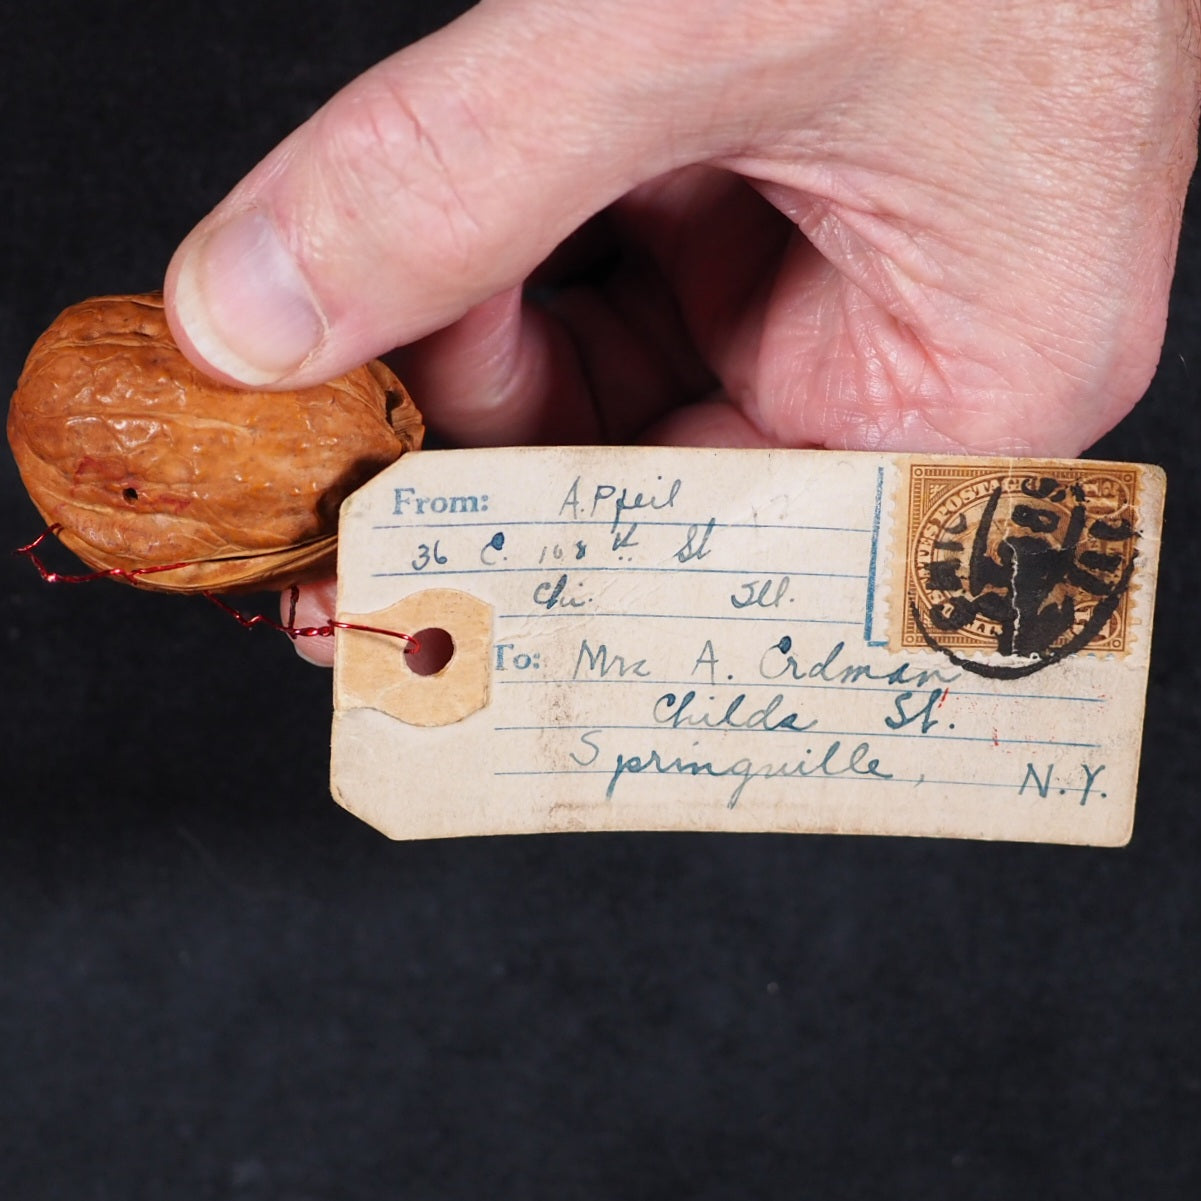 From: A. Pfeil
36 E. 108th St
Chi. Ill.
To: Mrs A. Erdman
Childs St.
Springville, N.Y.